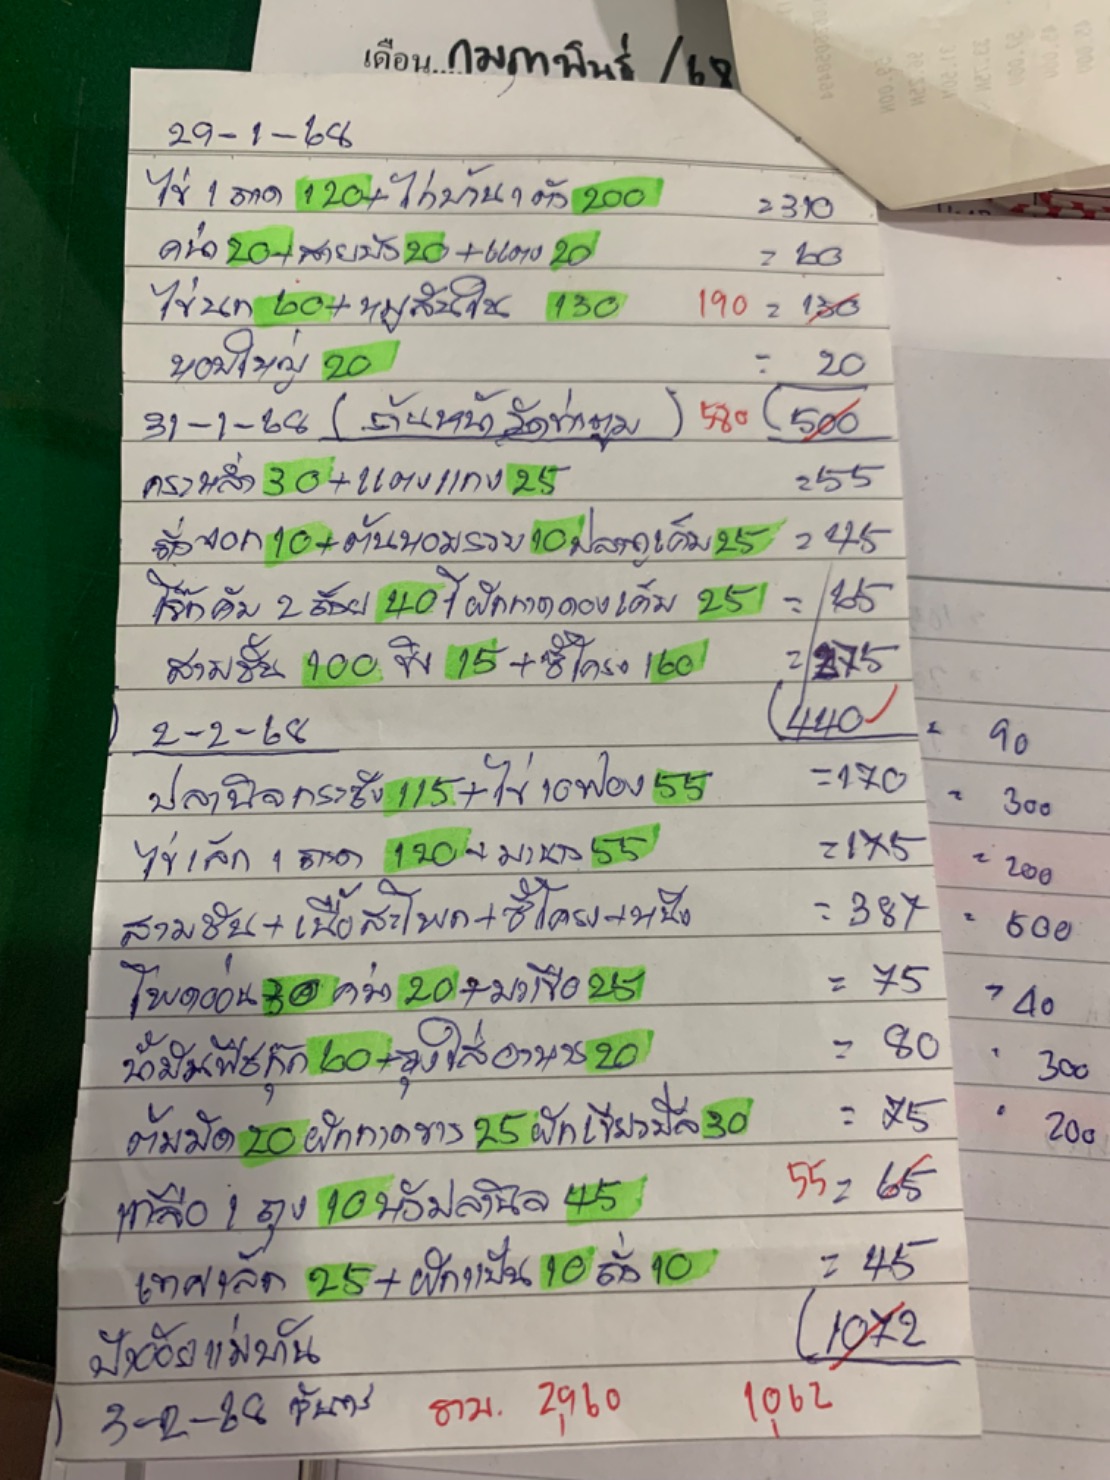 เดือน....กุมภาพันธ์ /68
29-1-68
ไข่ 1 ถาด 120+ไก่บ้าน 1 ตัว 200 =310
คน้า 20+สายบัว 20+แตง 20 = 60
ไข่นก 60+หมูสันใน 130 190 = 130
หอมใหญ่ 20 = 20
31-1-68 ( ) 580 (500
30+แตงแกง 25 =55
ถั่วงอก 10+ต้นหอมรวม 10 ปลาทูเค็ม 25 = 45
โจ๊กคัพ 2 ถ้วย 40 ผักกาดดองเค็ม 25 = 65
สามชั้น 100 ขิง 15+ซี่โครง 160 =275
2-2-68 (440 = 90
ปลานิลกระชัง 115+ไข่ 10 ฟอง 55 =170 = 300
ไข่เล็ก 1 ถาด 120+มะนาว 55 =175 = 200
สามชั้น+เนื้อสะโพก+ซี่โครง+หนัง = 387 = 500
โพดอ่อน 30 คน้า 20+มะเขือ 25 = 75 = 40
น้ำมันพืชกุ๊ก 60+ถุงใส่อาหาร 20 = 80 300
ต้มมัด 20 ผักกาดขาว 25 ผักเขียว 30 = 75 200
เกลือ 1 ถุง 10 หัวปลานิล 45 55 = 65
เทศเล็ก 25+ผักแป้น 10 ถั่ว 10 = 45
(1072
3-2-68 จันทร์ รวม. 2960 1062